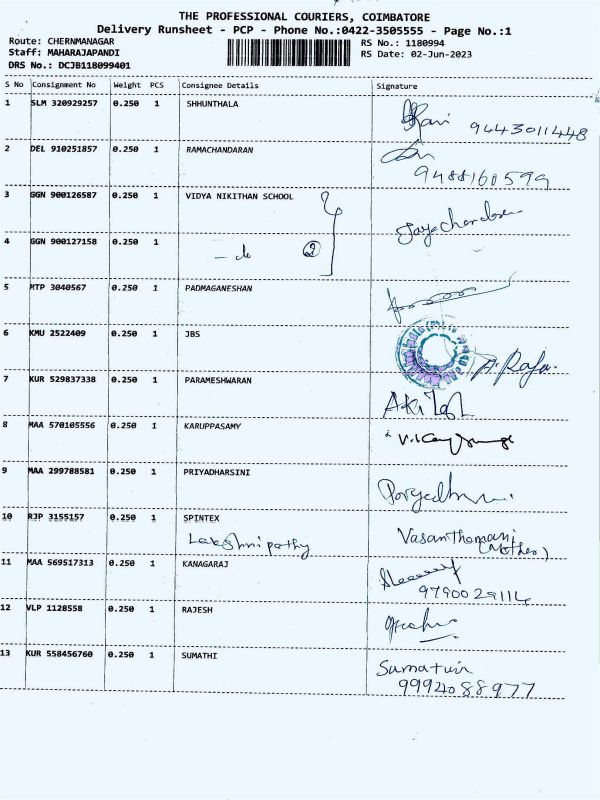 THE PROFESSIONAL COURIERS, COIMBATORE
Delivery Runsheet - PCP - Phone No.:0422-3505555 - Page No.:1
Route: CHERNMANAGAR
Staff: MAHARAJAPANDI
DRS No.: DCJB118099401
RS No.: 1180994
RS Date: 02-Jun-2023
S No Consignment No Weight PCS Consignee Details Signature
1 SLM 320929257 0.250 1 SHHUNTHALA
Ravi 9443011448
2 DEL 910251857 0.250 1 RAMACHANDRAN
9488160599
3 GGN 900126587 0.250 1 VIDYA NIKITHAN SCHOOL
4 GGN 900127158 0.250 1
- do 2
5 MTP 3040567 0.250 1 PADMAGANESHAN
6 KMU 2522409 0.250 1 JBS
A. Raja.
7 KUR 529837338 0.250 1 PARAMESHWARAN
8 MAA 570105556 0.250 1 KARUPPASAMY
9 MAA 299788581 0.250 1 PRIYADHARSINI
10 RJP 3155157 0.250 1 SPINTEX
Lakshmipathy Vasanthamani
(Mother)
11 MAA 569517313 0.250 1 KANAGARAJ
9790029114
12 VLP 1128558 0.250 1 RAJESH
13 KUR 558456760 0.250 1 SUMATHI
9994088977